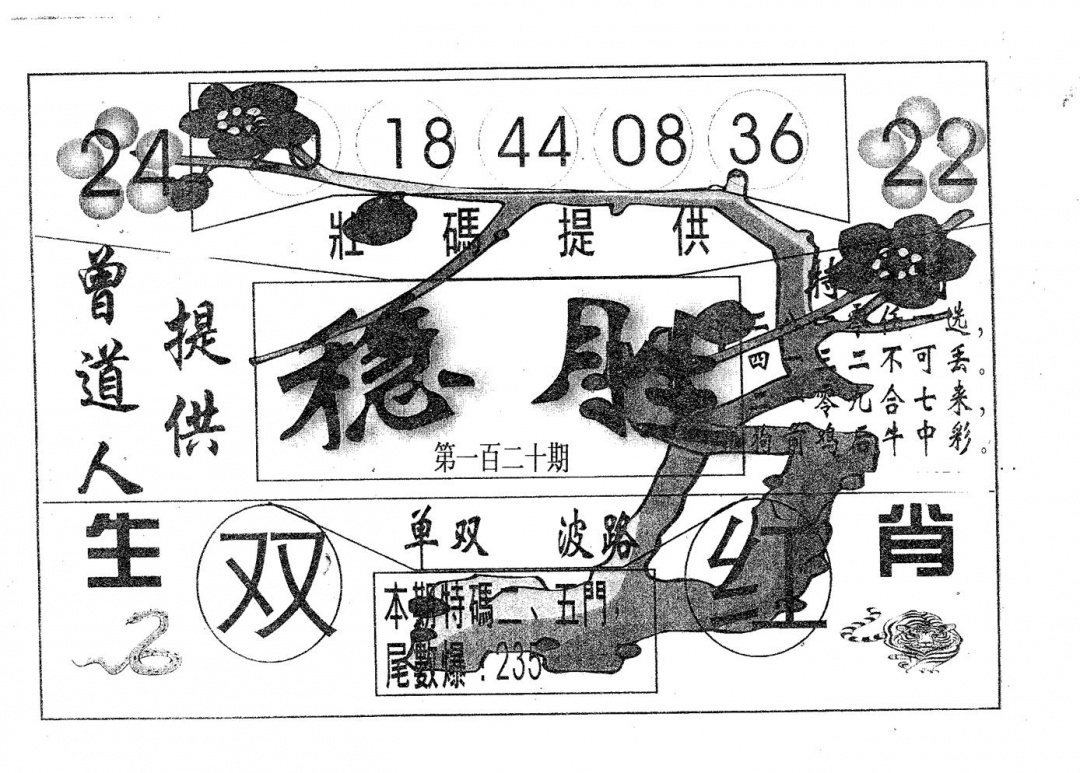 24 18 44 08 36 22
壯碼提供
特
曾道人
提供
稳胜
第一百二十期
选，
四一三二不可丢。
零九合七来，
狗前鸡后牛中彩。
生
双
单双 波路
红
肖
本期特碼二、五門，
尾數爆：235